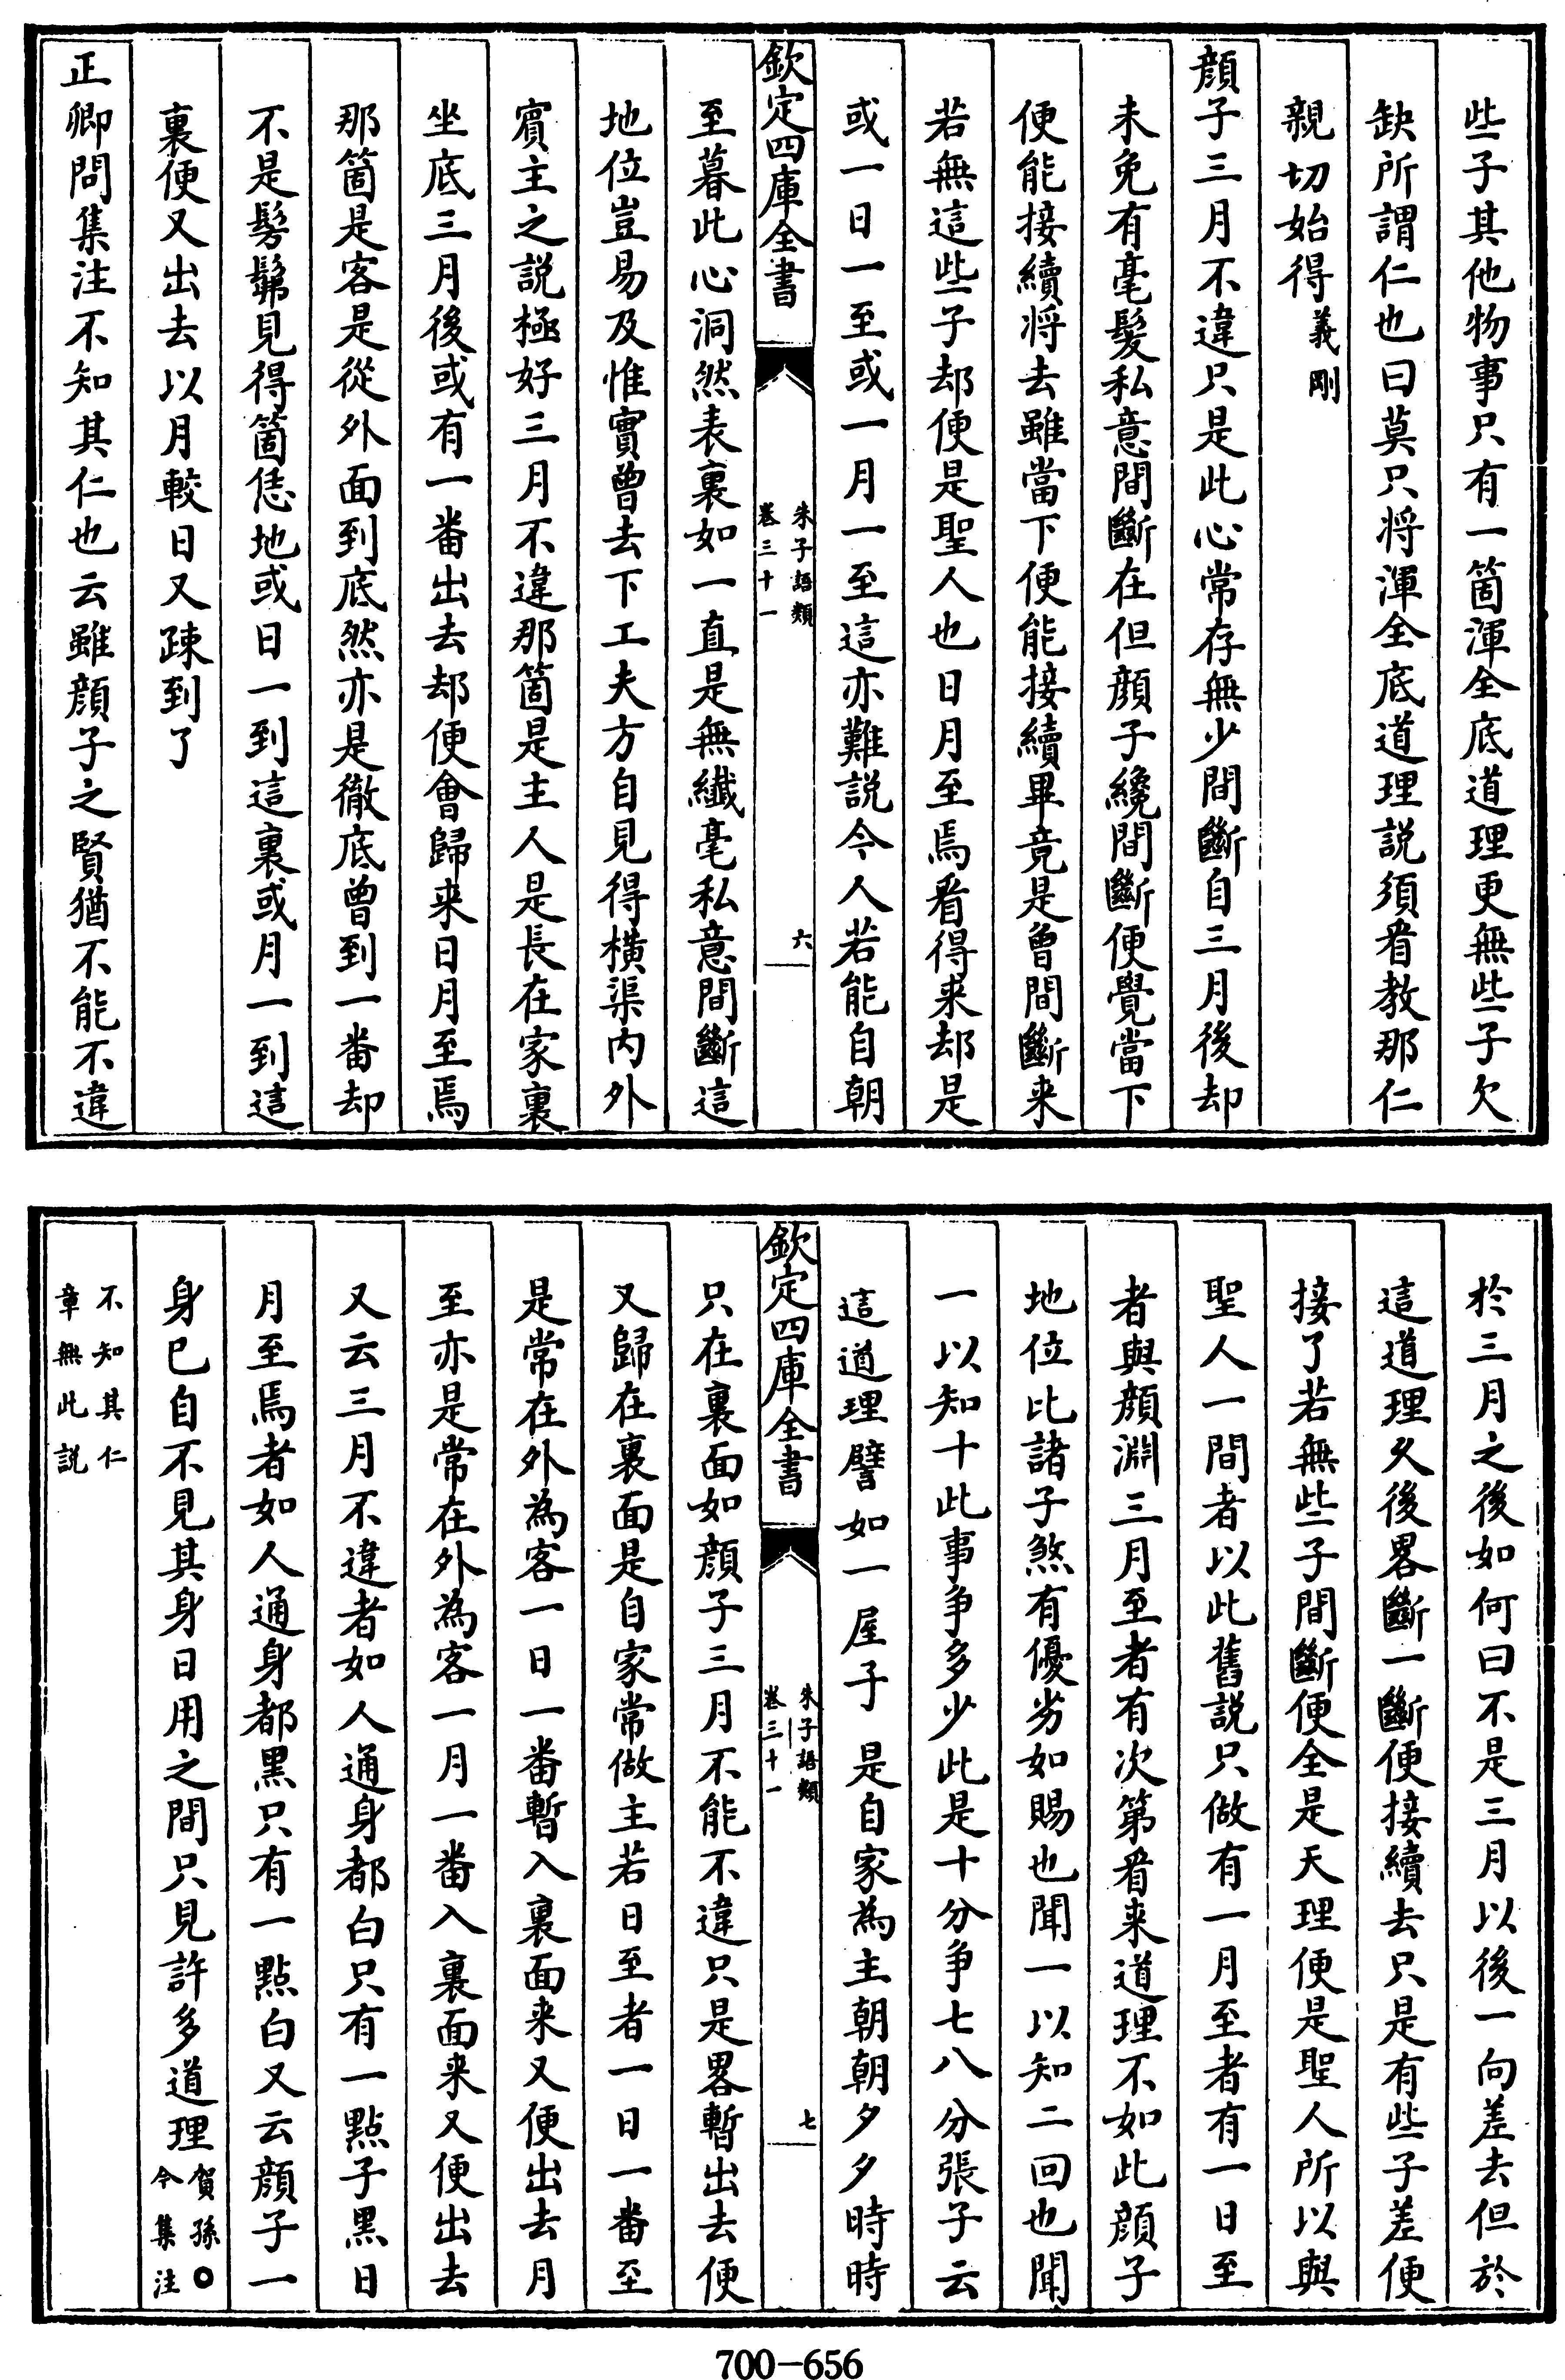 些子其他物事只有一箇渾全底道理更無些子欠
缺所謂仁也曰莫只将渾全底道理説須看教那仁
親切始得義剛
顔子三月不違只是此心常存無少間斷自三月後却
未免有毫髮私意間斷在但顔子纔間斷便覺當下
便能接續将去雖當下便能接續畢竟是曾間斷来
若無這些子却便是聖人也日月至焉看得来却是
或一日一至或一月一至這亦難説今人若能自朝
欽定四庫全書
朱子語類
卷三十一
六
至暮此心洞然表裏如一直是無纎毫私意間斷這
地位豈易及惟實曾去下工夫方自見得横渠内外
賓主之説極好三月不違那箇是主人是長在家裏
坐底三月後或有一番出去却便會歸来日月至焉
那箇是客是從外面到底然亦是徹底曾到一番却
不是髣髴見得箇恁地或日一到這裏或月一到這
裏便又出去以月較日又疎到了
正卿問集注不知其仁也云雖顔子之賢猶不能不違
於三月之後如何曰不是三月以後一向差去但於
這道理久後畧斷一斷便接續去只是有些子差便
接了若無些子間斷便全是天理便是聖人所以與
聖人一間者以此舊説只做有一月至者有一日至
者與顔淵三月至者有次第看来道理不如此顔子
地位比諸子煞有優劣如賜也聞一以知二回也聞
一以知十此事争多少此是十分争七八分張子云
這道理譬如一屋子是自家為主朝朝夕夕時時
欽定四庫全書
朱子語類
卷三十一
七
只在裏面如顔子三月不能不違只是畧暫出去便
又歸在裏面是自家常做主若日至者一日一番至
是常在外為客一日一番暫入裏面来又便出去月
至亦是常在外為客一月一番入裏面来又便出去
又云三月不違者如人通身都白只有一點子黒日
月至焉者如人通身都黒只有一點白又云顔子一
身已自不見其身日用之間只見許多道理賀孫○今集注
不知其仁
章無此説
700-656